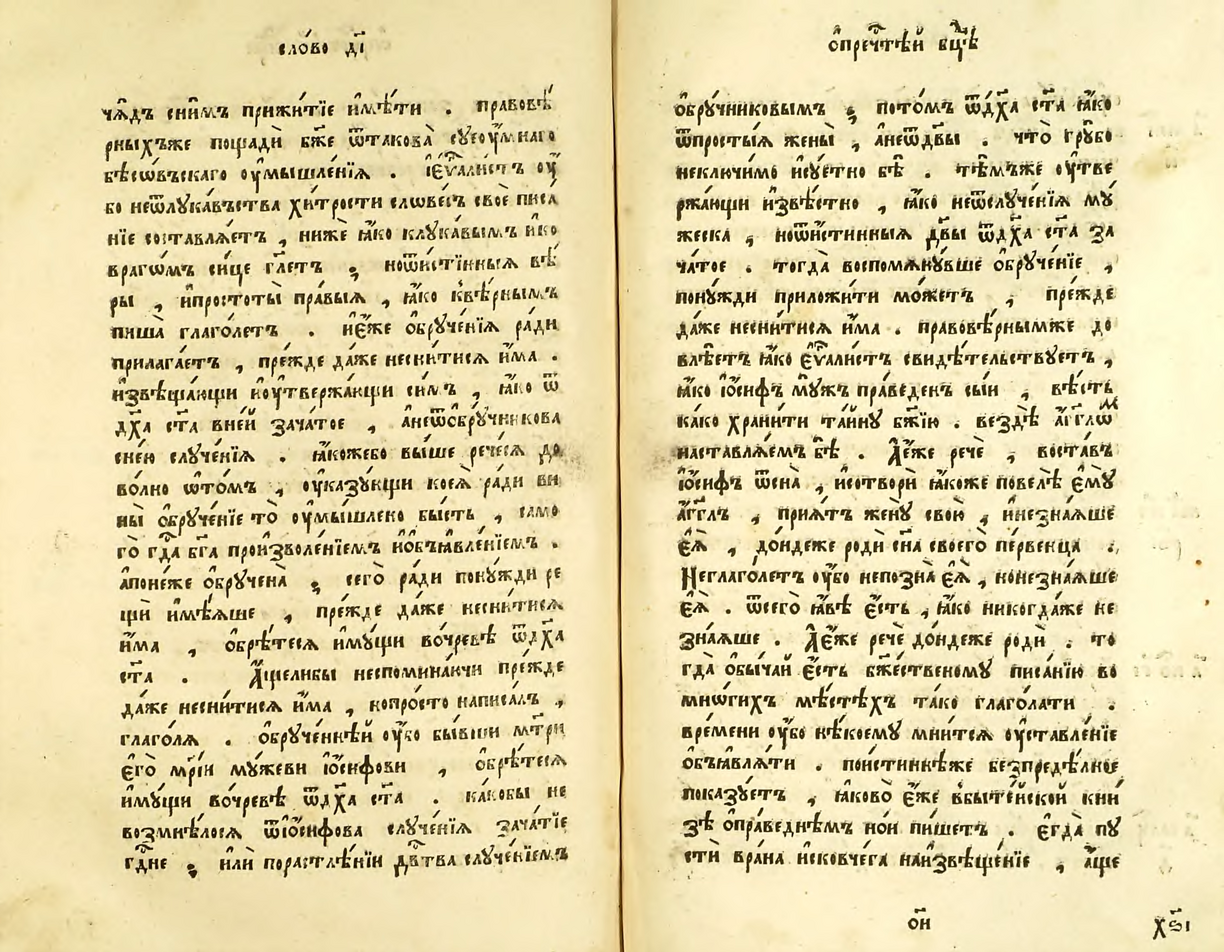 сло́во д҃і
ча̑дъ сни́мъ прижи́тїе имѣ́ти . правовѣ́
рныхъже пощадѝ бж҃е ѿтакова̀ сꙋеѹ́мнаго
бѣсѡвъскаго ѹмышле́нїѧ . і҆еѵⷢ҇али́стъ ѹ҆
бо неѿлꙋка́въства хи́трости слове́съ своѐ писа́
нїе составлѧ́етъ , нижѐ ꙗ҆́ко клꙋка́вымъ и҆́ко
врагѡ́мъ си́це гл҃етъ , ноѿи́стинныѧ вѣ́
ры , и҆простоты̀ пра́выѧ , ꙗ҆́ко квѣ́рнымъ
пиша̀ глаго́летъ . и҆є҆́же ѻ҆брꙋче́нїѧ ра́ди
прилага́етъ , пре́жде да́же несни́тисѧ и҆́ма .
и҆звѣща́ющи и҆ѹ҆твержа́ющи си́мъ , ꙗ҆́ко ѿ
дх҃а ст҃а вне́й зача́тое , а҆неѿѻ҆брꙋ́чникова
сне́ю слꙋче́нїѧ . ꙗ҆́кожебо вы́ше рече́сѧ до
во́лно ѡ҆то́мъ , ѹ҆ка́зꙋющи коеѧ̀ ра́ди ви
ны̀ ѻ҆брꙋче́нїе то̀ ѹ҆мы́шлено бы́сть , само
го̀ гд҇а бг҃а произволе́нїемъ и҆ѻ҆бъѧвле́нїемъ .
а҆поне́же ѻ҆брꙋче́на , сего̀ ра́ди понꙋ́жди ре
щѝ и҆мѣ́ѧше , пре́жде да́же несни́тисѧ
и҆́ма , ѻ҆брѣ́тесѧ и҆мꙋ́щи во́чревѣ ѿдх҃а
ст҃а . А҆́щелибы неспомина́ючи пре́жде
да́же несни́тисѧ и҆́ма , нопро́сто написа́лъ ,
глаго́лѧ . ѻ҆брꙋче́ннѣй ѹ҆́бо бы́вши мт҃ри
є҆го̀ мр҃і́и мꙋ́жеви і҆ѻ́сифови , ѻ҆брѣ́тесѧ
и҆мꙋ́щи во́чревѣ ѿдх҃а ст҃а . ка́кобы не
возмнѣ́лосѧ ѿі҆ѻ́сифова слꙋче́нїѧ зача́тїе
гд҇не , и҆лѝ порастлѣ́нїи дв҃тва слꙋче́нїемъ
ѻ҆пречⷭ҇тѣй бц҃ѣ
ѻ҆брꙋ́чниковымъ , пото́мъ ѿдх҃а ст҃а ꙗ҆́ко
ѿпросты́ѧ жены̀ , а҆неѿдв҃ы . что̀ грꙋ́бо
неключи́мо и҆сꙋ́етно бѣ̀ . тѣ́мъже ѹ҆тве
ржа́ющи и҆звѣ́стно , ꙗ҆́ко неѿслꙋче́нїѧ мꙋ́
жеска , ноѿи́стинныѧ дв҃ы ѿдх҃а ст҃а за
ча́тое . тогда̀ воспомѧнꙋ́вше ѻ҆брꙋче́нїе ,
понꙋ́жди приложи́ти мо́жетъ , пре́жде
да́же несни́тисѧ и҆́ма . правовѣ́рнымже до
влѣ́етъ ꙗ҆́ко є҆ѵⷢ҇али́стъ свидѣ́тельствꙋетъ ,
ꙗ҆́ко і҆ѻ́сифъ мꙋ́жъ пра́веденъ сы́и , вѣ́сть
ка́ко храни́ти та́йнꙋ бж҃їю . вездѣ̀ а҆́гг҃лѡм
наставлѧ́емъ бѣ̀ . А҆є҆́же речѐ , воста́въ
і҆ѻ́сифъ ѿсна̀ , и҆сотворѝ ꙗ҆́коже повелѣ̀ є҆мꙋ̀
а҆́гг҃лъ , приѧ́тъ женꙋ̀ свою̀ , и҆незна́ѧше
є҆ѧ̀ , до́ндеже родѝ сн҃а своего̀ пе́рвенца .,
Неглаго́летъ ѹ҆́бо непозна̀ є҆ѧ̀ , нонезна́ѧше
є҆ѧ̀ . ѿсего̀ ꙗ҆́вѣ є҆́сть , ꙗ҆́ко никогда́же не
зна́ѧше . А҆є҆́же речѐ до́ндеже родѝ . то
гда̀ ѻ҆бы́чай є҆́сть бж҃е́ственомꙋ писа́нїю во
мно́гихъ мѣ́стѣхъ та́ко глаго́лати .
вре́мени ѹ҆́бо нѣ́коемꙋ мни́тсѧ ѹ҆ставле́нїе
ѻ҆бъѧвлѧ́ти . пои́стиннѣже безпредѣ́лное
пока́зꙋетъ , ꙗ҆ково̀ є҆́же вбыте́йской кни́
зѣ ѻ҆пра́веднѣмъ но́и пи́шетъ . є҆гда̀ пꙋ
стѝ вра́на и҆ско́вчега наи҆звѣще́нїе , а҆́ще
ѻ҆́н